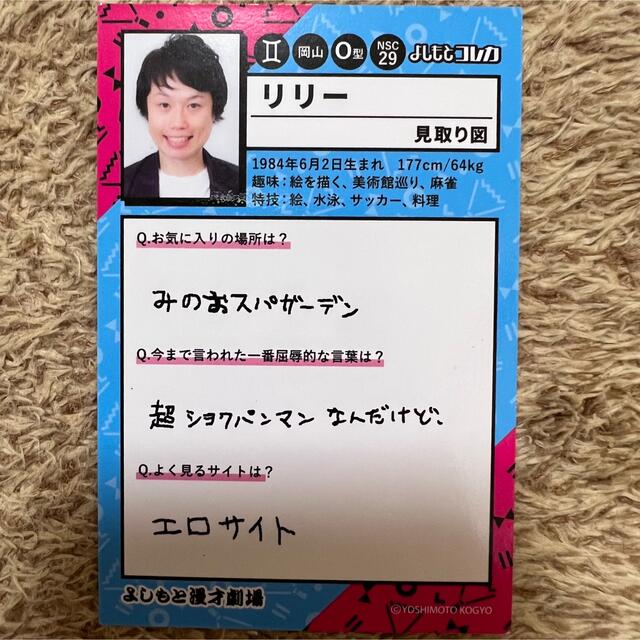 ♊ 岡山 O型 NSC 29 よしもとコレカ
リリー
見取り図
1984年6月2日生まれ 177cm/64kg
趣味：絵を描く、美術館巡り、麻雀
特技：絵、水泳、サッカー、料理
Q.お気に入りの場所は？
みのおスパガーデン
Q.今まで言われた一番屈辱的な言葉は？
超ショクパンマンなんだけど、
Q.よく見るサイトは？
エロサイト
よしもと漫才劇場
©YOSHIMOTO KOGYO